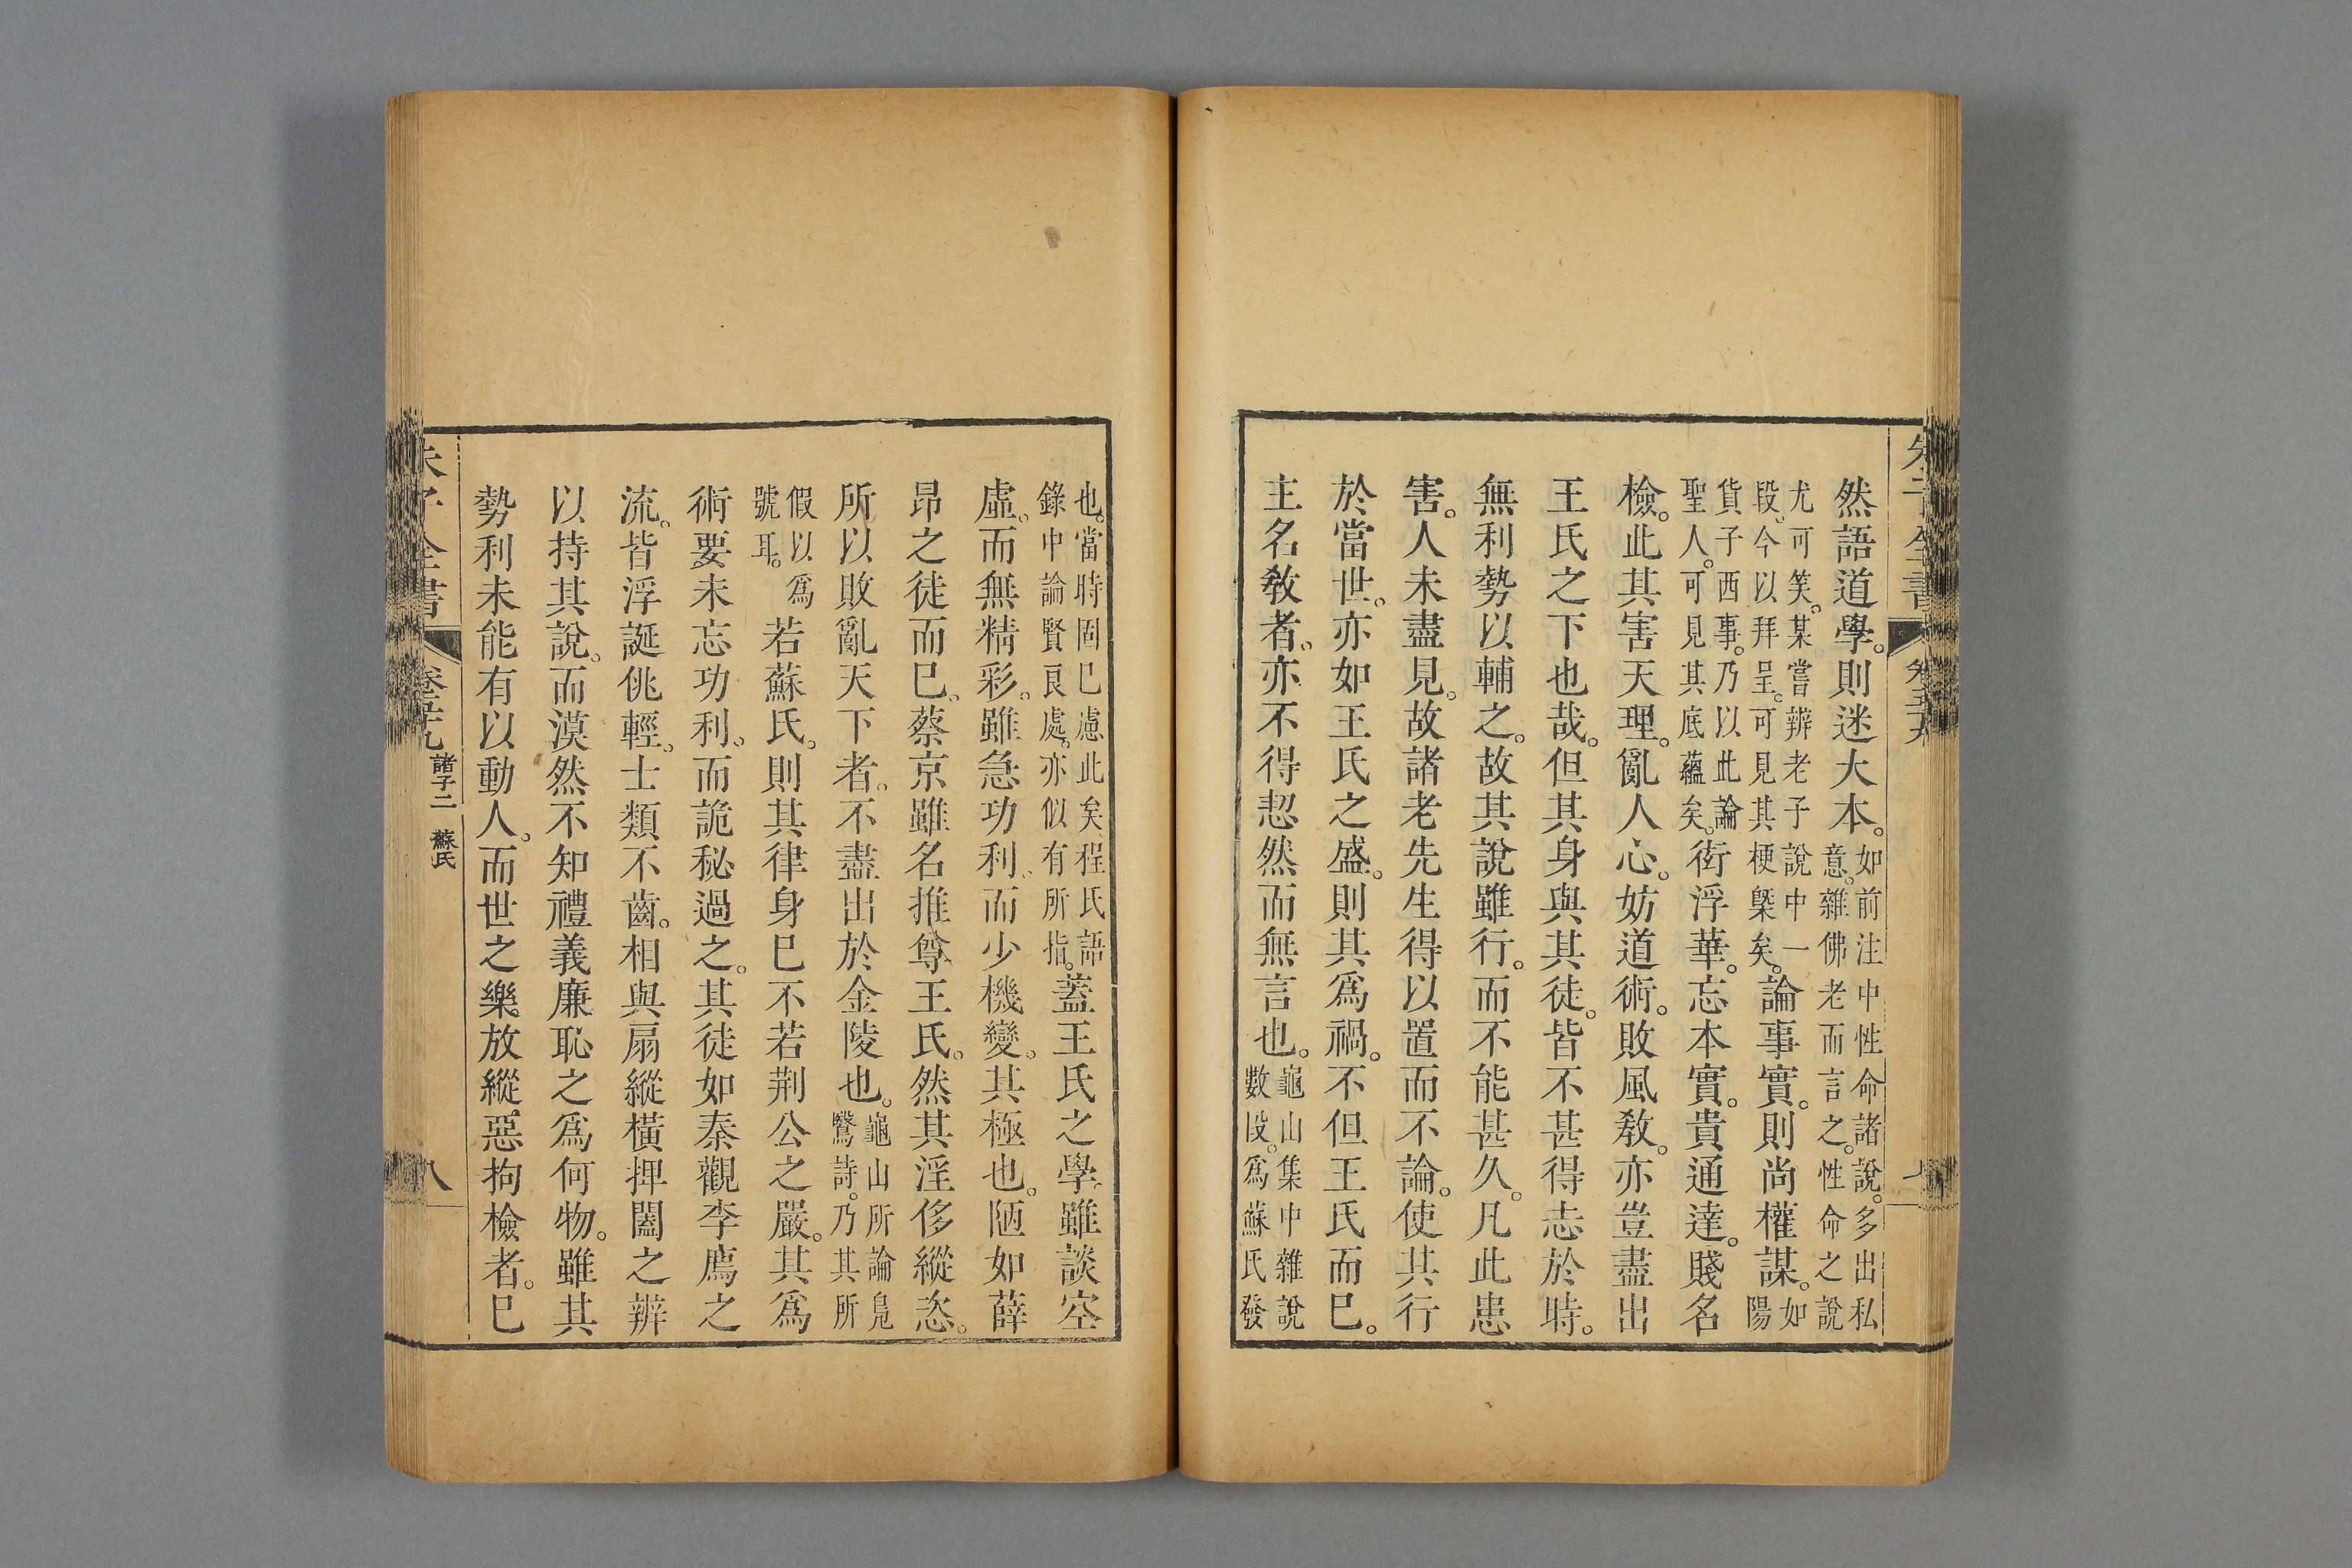 朱子全書 卷五十九
然語道學。則迷大本。如前注中性命諸說。多出私意。雜佛老而言之。性命之說
尤可笑。某嘗辨老子說中一段。今以拜呈。可見其梗槩矣。論事實。則尚權謀。如陽
貨子西事。乃以此論聖人。可見其底蘊矣。衒浮華。忘本實。貴通達。賤名
檢。此其害天理。亂人心。妨道術。敗風教。亦豈盡出
王氏之下也哉。但其身與其徒。皆不甚得志於時。
無利勢以輔之。故其說雖行。而不能甚久。凡此患
害。人未盡見。故諸老先生得以置而不論。使其行
於當世。亦如王氏之盛。則其爲禍。不但王氏而巳。
主名教者。亦不得恝然而無言也。龜山集中雜說數段。爲蘇氏發
也。當時固巳慮此矣程氏語錄中論賢良處。亦似有所指。蓋王氏之學雖談空
虛。而無精彩。雖急功利。而少機變。其極也。陋如薛
昂之徒而巳。蔡京雖名推尊王氏。然其淫侈縱恣。
所以敗亂天下者。不盡出於金陵也。龜山所論鳧鷖詩。乃其所
假以爲號耳。若蘇氏。則其律身巳不若荆公之嚴。其爲
術要未忘功利。而詭秘過之。其徒如秦觀李廌之
流。皆浮誕佻輕。士類不齒。相與扇縱橫捭闔之辨
以持其說。而漠然不知禮義廉恥之爲何物。雖其
勢利未能有以動人。而世之樂放縱惡拘檢者。巳
朱子全書 卷五十九 諸子二 蘇氏 八